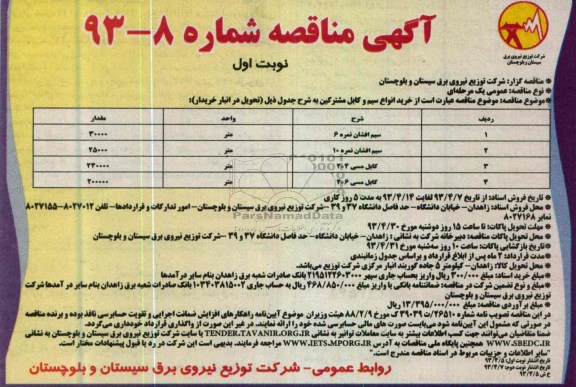 آگهی مناقصه شماره ۸-۹۳
نوبت اول
شرکت توزیع نیروی برق
سیستان و بلوچستان
* مناقصه گزار: شرکت توزیع نیروی برق سیستان و بلوچستان
* نوع مناقصه: عمومی یک مرحله‌ای
* موضوع مناقصه: موضوع مناقصه عبارت است از خرید انواع سیم و کابل مشترکین به شرح جدول ذیل (تحویل در انبار خریدار):
ردیف شرح واحد مقدار
۱ سیم افشان نمره ۶ متر ۳۰۰۰۰
۲ سیم افشان نمره ۱۰ متر ۲۵۰۰۰
۳ کابل مسی ۴*۲ متر ۲۴۰۰۰۰
۴ کابل مسی ۶*۲ متر ۲۰۰۰۰۰
* تاریخ فروش اسناد: از تاریخ ۹۳/۴/۷ لغایت ۹۳/۴/۱۴ به مدت ۵ روز کاری
* محل فروش اسناد: زاهدان- خیابان دانشگاه- حد فاصل دانشگاه ۳۷ و ۳۹ -شرکت توزیع نیروی برق سیستان و بلوچستان- امور تدارکات و قراردادها- تلفن ۸۰۲۷۰۱۲-۸۰۲۷۱۵۵
نمابر ۸۰۲۷۱۶۸
* مهلت تحویل پاکات: تا ساعت ۱۵ روز دوشنبه مورخ ۹۳/۴/۳۰
* محل تحویل پاکات مناقصه: دبیرخانه شرکت به نشانی: زاهدان- خیابان دانشگاه- حد فاصل دانشگاه ۳۷ و ۳۹ -شرکت توزیع نیروی برق سیستان و بلوچستان
* تاریخ بازگشایی پاکات: ساعت ۱۰ روز سه‌شنبه مورخ ۹۳/۴/۳۱
* مدت قرارداد: ۲ ماه پس از ابلاغ قرارداد و براساس جدول زمانبندی
* محل تحویل کالا: زاهدان- کیلومتر ۵ جاده کورین انبار مرکزی شرکت توزیع می‌باشد.
* مبلغ خرید اسناد: مبلغ ۳۰۰/۰۰۰ ریال واریز بحساب جاری سپهر ۲۱۹۵۱۲۲۶۰۳۰۰۰ بانک صادرات شعبه برق زاهدان بنام سایر درآمدها
* مبلغ و نوع تضمین شرکت در مناقصه: ضمانتنامه بانکی یا واریز مبلغ ۴۶۸/۸۵۰/۰۰۰ ریال به حساب جاری ۰۱۰۲۴۰۳۸۱۵۰۰۲ بانک صادرات شعبه برق زاهدان بنام سایر درآمدها شرکت
توزیع نیروی برق سیستان و بلوچستان
* مبلغ برآوردی مناقصه: مبلغ ۱۳/۳۹۵/۰۰۰/۰۰۰ ریال
در این مناقصه تصویب نامه شماره ۲۶۵۱۰/ت ۳۹۰۳۹ ک مورخ ۸۸/۲/۹ هیئت وزیران موضوع آیین‌نامه راهکارهای افزایش ضمانت اجرایی و تقویت حسابرسی نافذ بوده و برنده مناقصه
در صورتی که مشمول این آیین‌نامه شود می‌بایست صورت های مالی حسابرسی شده خود را ارائه نمایند، در غیر این صورت از واگذاری قرارداد خودداری می‌گردد.
ضمنا متقاضیان می‌توانند جهت کسب اطلاعات بیشتر به سایت معاملات توانیر به نشانی TENDER.TAVANIR.ORG.IR یا سایت شرکت توزیع نیروی برق سیستان و بلوچستان به نشانی
WWW.SBEDC.IR همچنین پایگاه ملی مناقصات به آدرس WWW.IETS.MPORG.IR مراجعه فرمایند، بدیهی است این شرکت در رد یا قبول پیشنهادات مختار است.
"سایر اطلاعات و جزییات مربوط در اسناد مناقصه مندرج است."
تاریخ انتشار نوبت اول: ۹۳/۴/۵
تاریخ انتشار نوبت دوم: ۹۳/۴/۷
روابط عمومی- شرکت توزیع نیروی برق سیستان و بلوچستان
ParsNamadData